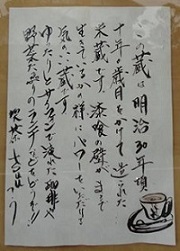 この蔵は明治30年頃
十年の歳月をかけて造られた
米蔵です。漆喰の壁がまるで
生きているかの様にパワーをいただける
気のいい蔵です
ゆったりとサイフォンで淹れた珈琲や
野菜たっぷりのランチをどうぞ!!
喫茶